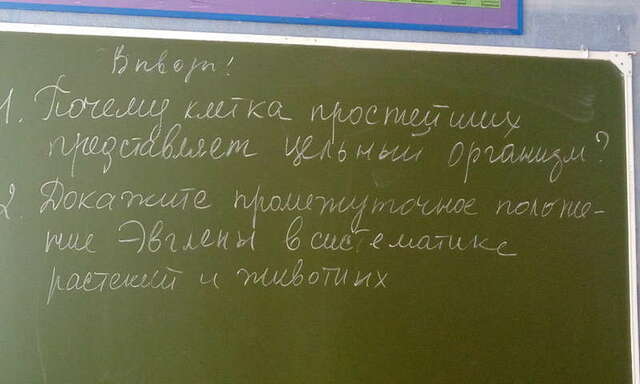 Выводы!
1. Почему клетка простейших
представляет цельный организм?
2. Докажите промежуточное положе-
ние Эвглены в систематике
растений и животных